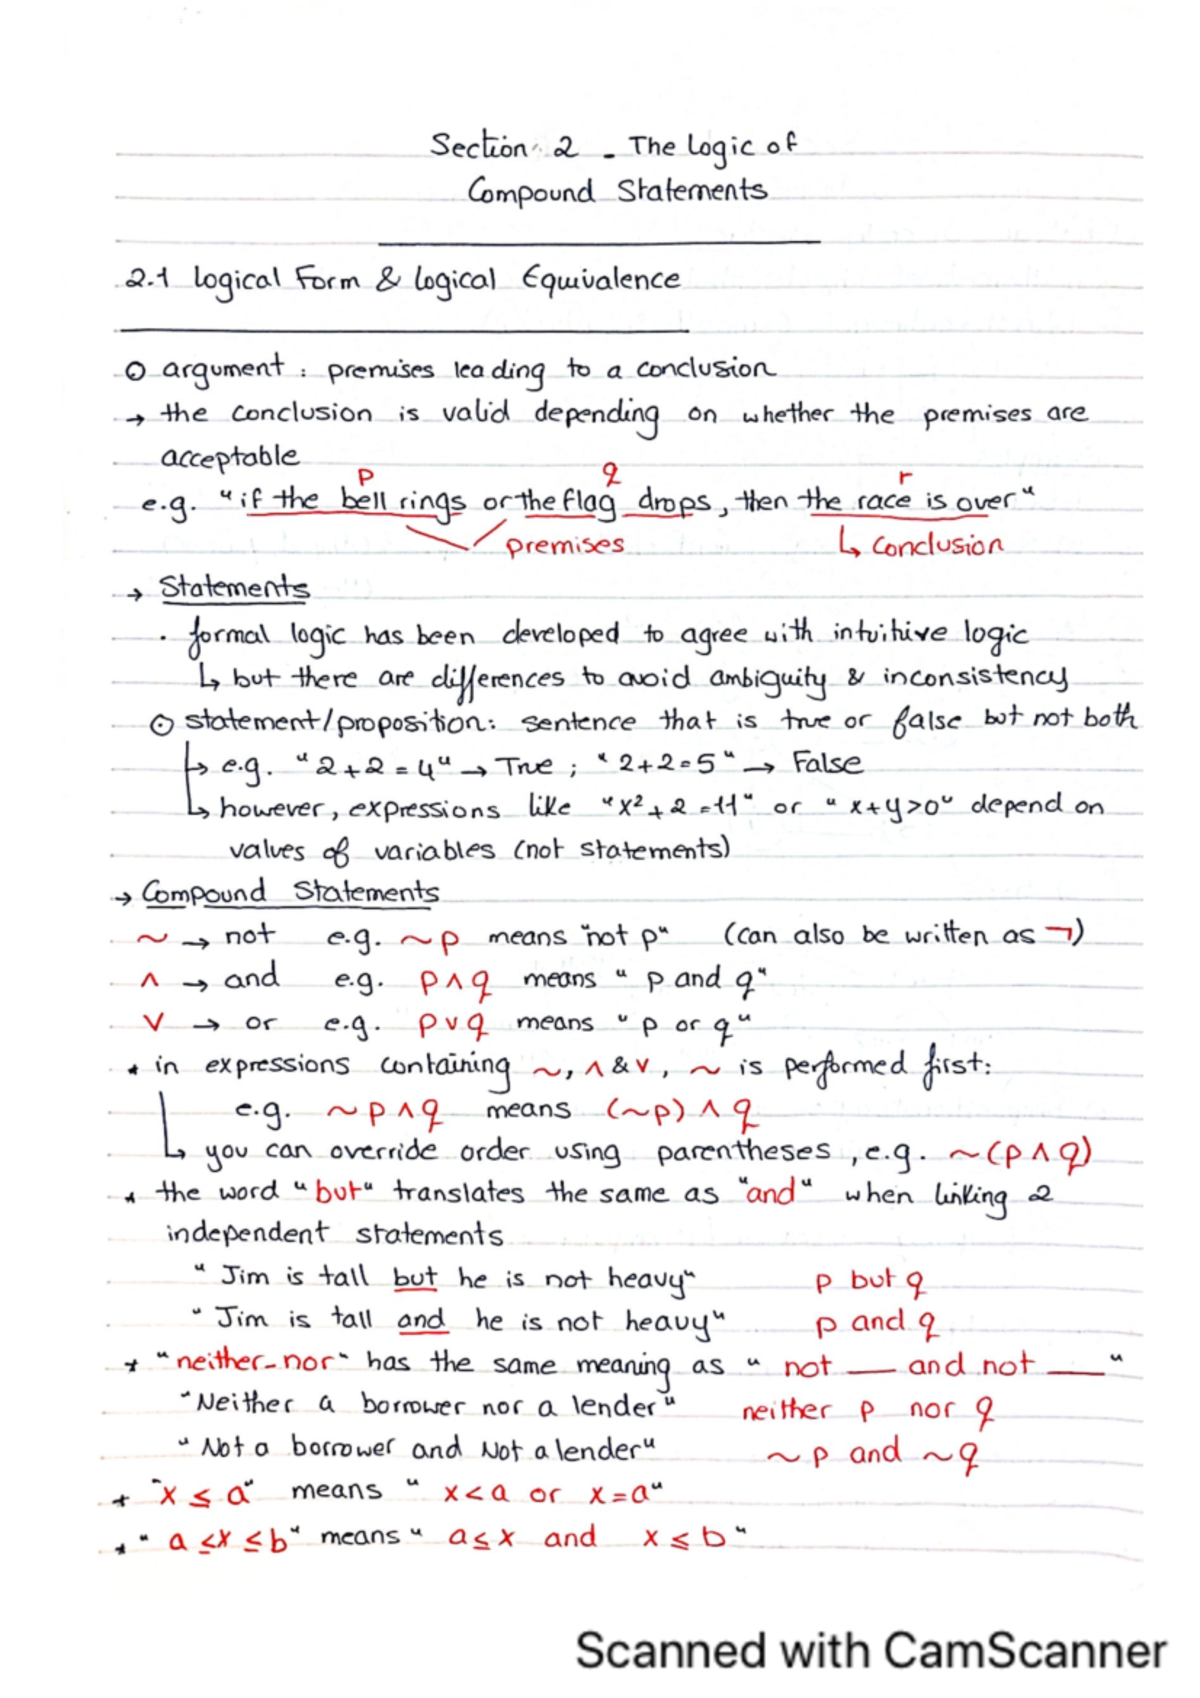 Section 2 - The Logic of
Compound Statements
2.1 Logical Form & Logical Equivalence
⊙ argument : premises leading to a conclusion
→ the conclusion is valid depending on whether the premises are
acceptable
p q r
e.g. "if the bell rings or the flag drops, then the race is over"
premises ↳ conclusion
→ Statements
· formal logic has been developed to agree with intuitive logic
↳ but there are differences to avoid ambiguity & inconsistency
⊙ statement/proposition: sentence that is true or false but not both
↳ e.g. "2+2=4" → True ; "2+2=5" → False
↳ however, expressions like "x²+2=11" or "x+y>0" depend on
values of variables (not statements)
→ Compound Statements
~ → not e.g. ~p means "not p" (can also be written as ¬)
∧ → and e.g. p∧q means "p and q"
∨ → or e.g. p∨q means "p or q"
* in expressions containing ~, ∧ & ∨, ~ is performed first:
e.g. ~p∧q means (~p)∧q
↳ you can override order using parentheses, e.g. ~(p∧q)
* the word "but" translates the same as "and" when linking 2
independent statements
"Jim is tall but he is not heavy" p but q
"Jim is tall and he is not heavy" p and q
* "neither-nor" has the same meaning as "not __ and not __"
"Neither a borrower nor a lender" neither p nor q
"Not a borrower and Not a lender" ~p and ~q
* "x ≤ a" means "x<a or x=a"
* "a ≤ x ≤ b" means "a ≤ x and x ≤ b"
Scanned with CamScanner